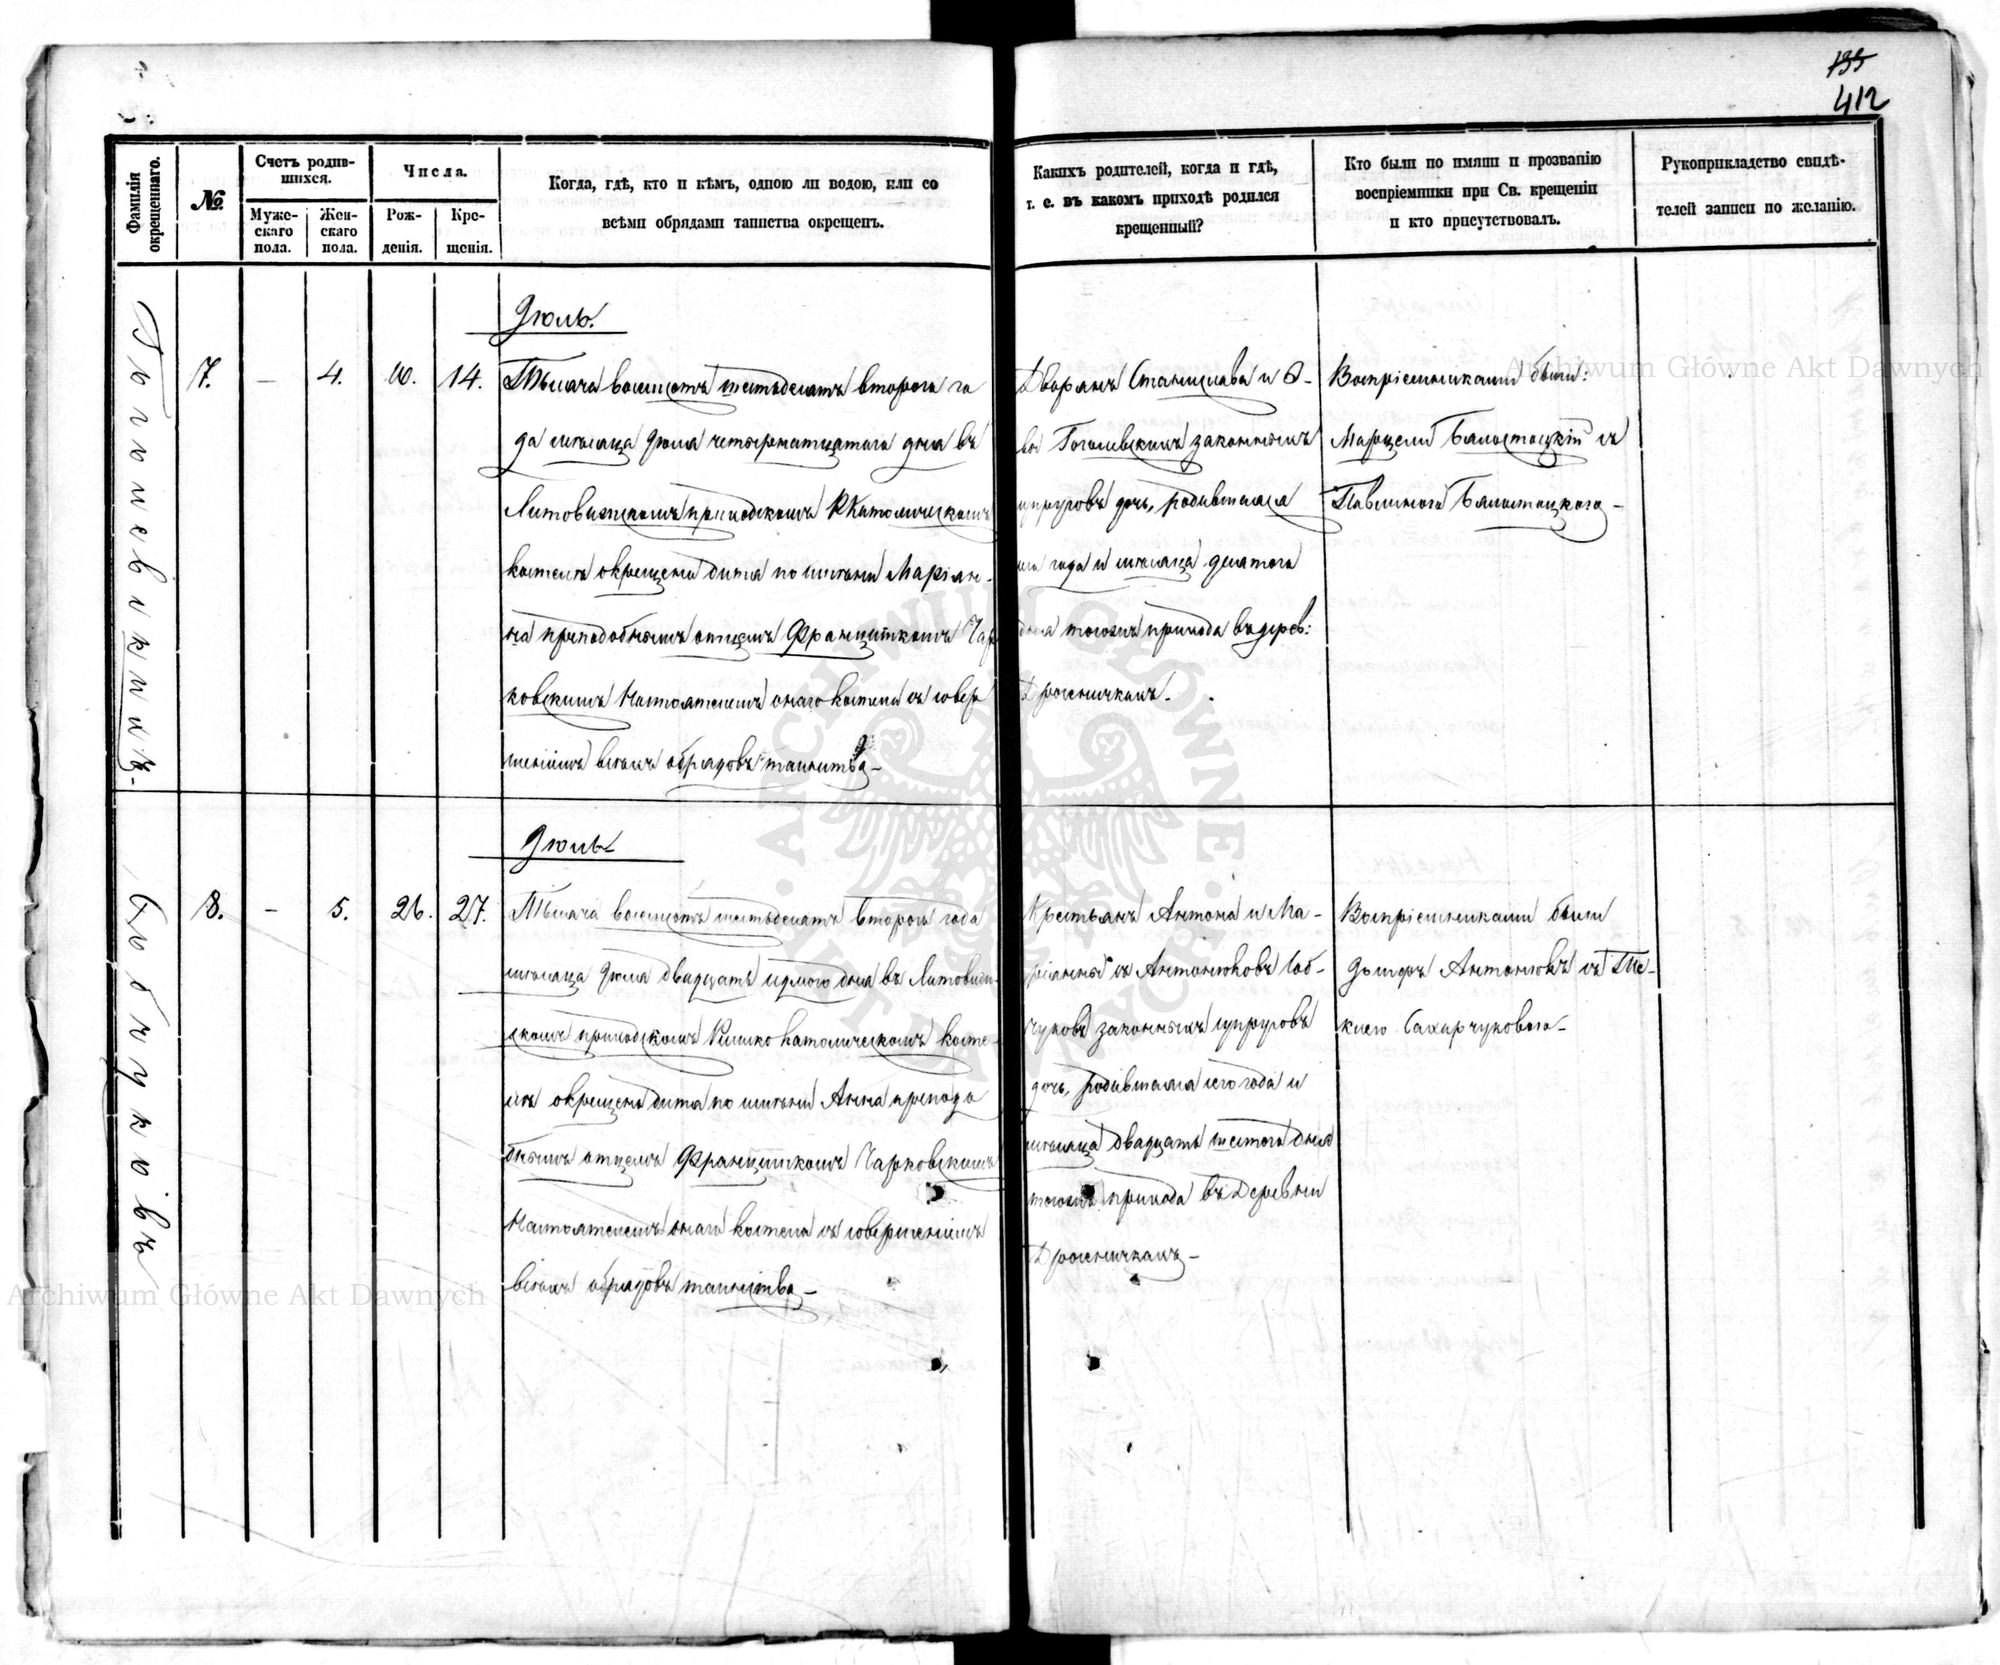 135
412
Фамилія окрещеннаго.
№
Счетъ родившихся.
Мужескаго пола.
Женскаго пола.
Числа.
Рожденія.
Крещенія.
Когда, гдѣ, кто и кѣмъ, одною ли водою, или со
всѣми обрядами таинства окрещенъ.
Какихъ родителей, когда и гдѣ,
т. е. въ какомъ приходѣ родился
крещенный?
Кто были по имяни и прозванію
воспріемники при Св. крещеніи
и кто присутствовалъ.
Рукоприкладство свидѣ-
телей записи по желанію.
Іюль.
7. — 4. 10. 14.
Тысяча восемсотъ шестьдесятъ втораго го
да мѣсяца Іюля четырнатцатаго дня въ
приходскомъ Р Католическомъ
костелѣ окрещена дитя по имени Маріан-
на преподобнымъ отцемъ Францишкомъ Чар
ковскимъ Настоятелемъ онаго костела съ совер
шеніемъ всѣхъ обрядовъ таинства
Дворянъ Станислава и Э-
вы законныхъ
супруговъ дочь, родившаяся
сего года и мѣсяца десятаго
дня тогожъ прихода въ дерев:
Воспріемниками были:
Марцели Бялостоцкій съ
Бялостоцкого
Іюль
8. — 5. 26. 27.
Тысяча восемсотъ шестьдесятъ втораго года
мѣсяца Іюля двадцать седмого дня въ
скомъ приходскомъ Римско Католическомъ косте-
лѣ окрещена дитя по имени Анна преподо
бнымъ отцемъ Францишкомъ Чарковскимъ
Настоятелемъ онаго костела съ совершеніемъ
всѣхъ обрядовъ таинства
Крестьянъ Антона и Ма-
ріанны съ Антонюковъ Соб-
чуковъ законныхъ супруговъ
дочь, родившаяся сего года и
мѣсяца двадцать шестого дня
тогожъ прихода въ Деревни
Воспріемниками были
Антонюкъ съ Те-
клею
Собчуковъ
Archiwum Główne Akt Dawnych
Archiwum Główne Akt Dawnych
ARCHIWUM GŁÓWNE AKT DAWNYCH